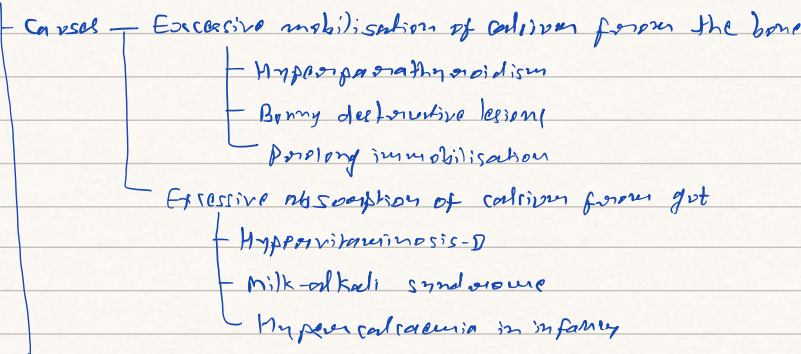 Causes — Excessive mobilisation of calcium from the bone
Hyperparathyroidism
Bonny destructive lesions
Prolong immobilisation
Excessive absorption of calcium from gut
Hypervitaminosis-D
Milk-alkali syndrome
Hypercalcaemia in infancy